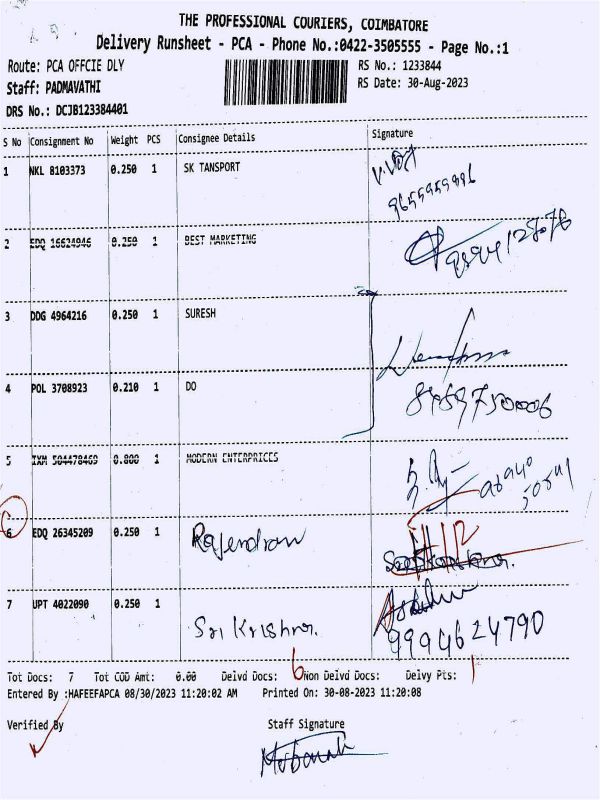 THE PROFESSIONAL COURIERS, COIMBATORE
Delivery Runsheet - PCA - Phone No.:0422-3505555 - Page No.:1
Route: PCA OFFCIE DLY
RS No.: 1233844
Staff: PADMAVATHI
RS Date: 30-Aug-2023
DRS No.: DCJB123384401
S No Consignment No Weight PCS Consignee Details Signature
1 NKL 8103373 0.250 1 SK TANSPORT
9655955996
2 EDQ 16624946 0.250 1 BEST MARKETING
3 DDG 4964216 0.250 1 SURESH
4 POL 3708923 0.210 1 DO
5 IXM 504478469 0.800 1 MODERN ENTERPRICES
6 EDQ 26345209 0.250 1 Rajendran
7 UPT 4022090 0.250 1 Sri Krishna.
9994624790
Tot Docs: 7 Tot COD Amt: 0.00 Delvd Docs: 6 Non Delvd Docs: 1 Delvy Pts:
Entered By :HAFEEFAPCA 08/30/2023 11:20:02 AM Printed On: 30-08-2023 11:20:08
Verified By Staff Signature
Mubarak